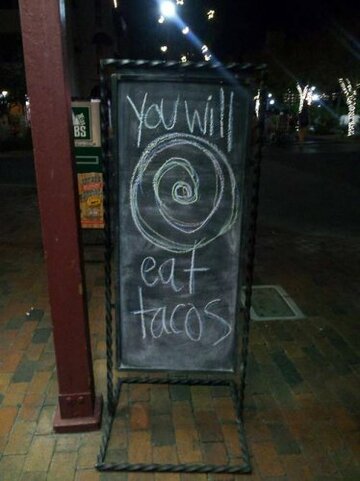 you will
eat
tacos
BS